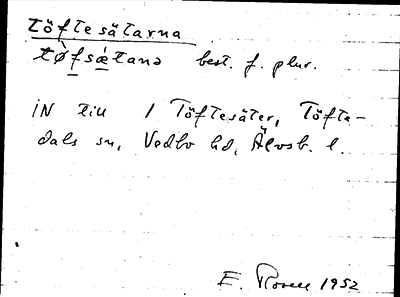 Töftesätarna
tø̀fsǽtanə best. f. plur.
IN till 1 Töftesäter, Töfte-
dals sn, Vedbo hd, Älvsb. l.
E. Rosell 1952